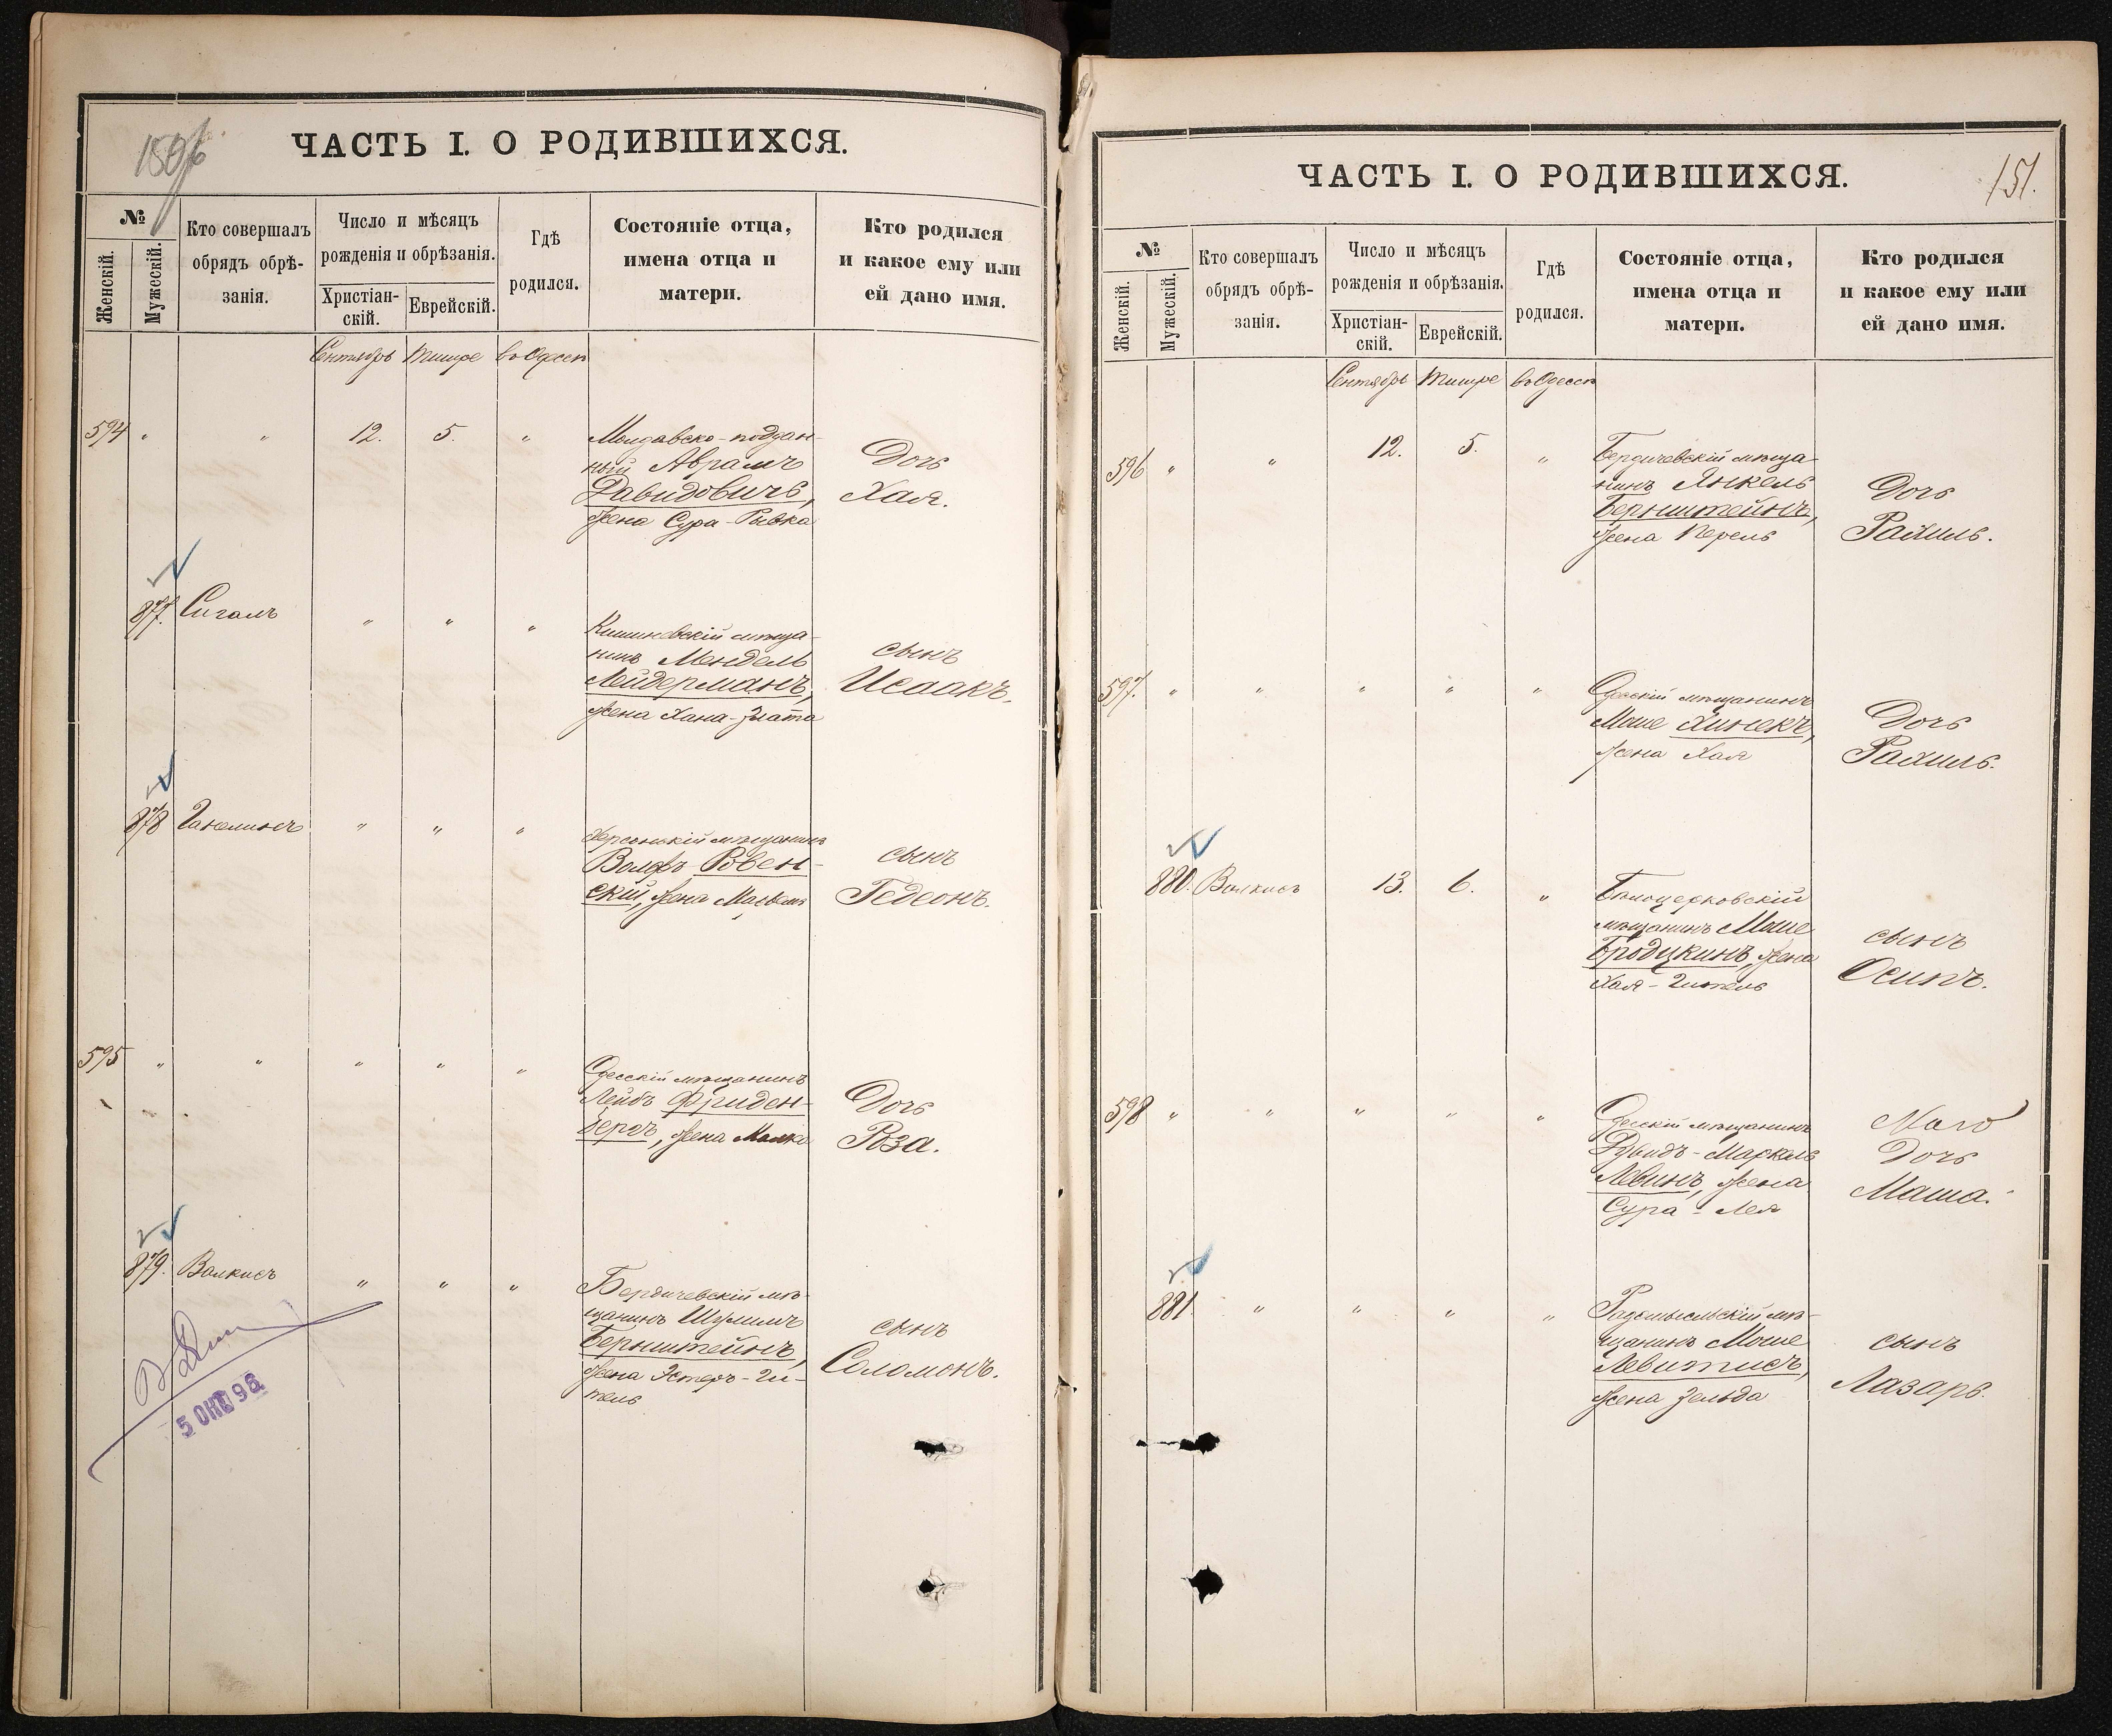 150/б
ЧАСТЬ I. О РОДИВШИХСЯ.
№
Женскій.
Мужескій.
Кто совершалъ
обрядъ обрѣ-
занія.
Число и мѣсяцъ
рожденія и обрѣзанія.
Христіан-
скій.
Еврейскій.
Гдѣ
родился.
Состояніе отца,
имена отца и
матери.
Кто родился
и какое ему или
ей дано имя.
Сентябрь Тишре въ Одессѣ
594 " " 12. 5. "
Молдавско-поддан-
ный Аврамъ
Давидовичъ,
жена Сура-Рывка
Дочь
Хая.
877. Сигалъ " " "
Кишиневскій мѣща-
нинъ Мендель
Лейдерманъ,
жена Хана-Злата
сынъ
Исаакъ.
878 " " "
Херсонскій мѣщанинъ
Вольфъ Ровен-
скій, жена
сынъ
Гедеонъ.
595 " " " " "
Одесскій мѣщанинъ
Лейбъ Фриден-
бергъ, жена Малка
Дочь
Роза.
879. Валкисъ " " "
Бердичевскій мѣ-
щанинъ Шулимъ
Бернштейнъ,
жена Эстеръ-Ги-
тель
сынъ
Соломонъ.
5 ОКТ 98
151.
ЧАСТЬ I. О РОДИВШИХСЯ.
№
Женскій.
Мужескій.
Кто совершалъ
обрядъ обрѣ-
занія.
Число и мѣсяцъ
рожденія и обрѣзанія.
Христіан-
скій.
Еврейскій.
Гдѣ
родился.
Состояніе отца,
имена отца и
матери.
Кто родился
и какое ему или
ей дано имя.
Сентябрь Тишре въ Одессѣ
596 " " 12. 5. "
Бердичевскій мѣща-
нинъ Янкель
Бернштейнъ,
жена Перель
Дочь
Рахиль.
597. " " " " "
Одесскій мѣщанинъ
Моше Хинекъ,
жена Хая
Дочь
Рахиль.
880. Валкисъ 13. 6. "
Бѣлоцерковскій
мѣщанинъ Моше
Бродцкинъ, жена
Хая-Гитель
сынъ
Осипъ.
598 " " " " "
Одесскій мѣщанинъ
Дувидъ-Маркель
Левинъ, жена
Сура-Лея
Дочь
Маша.
881. " " " "
Радомысльскій мѣ-
щанинъ Моше
Левитисъ,
жена Зельда
сынъ
Лазарь.